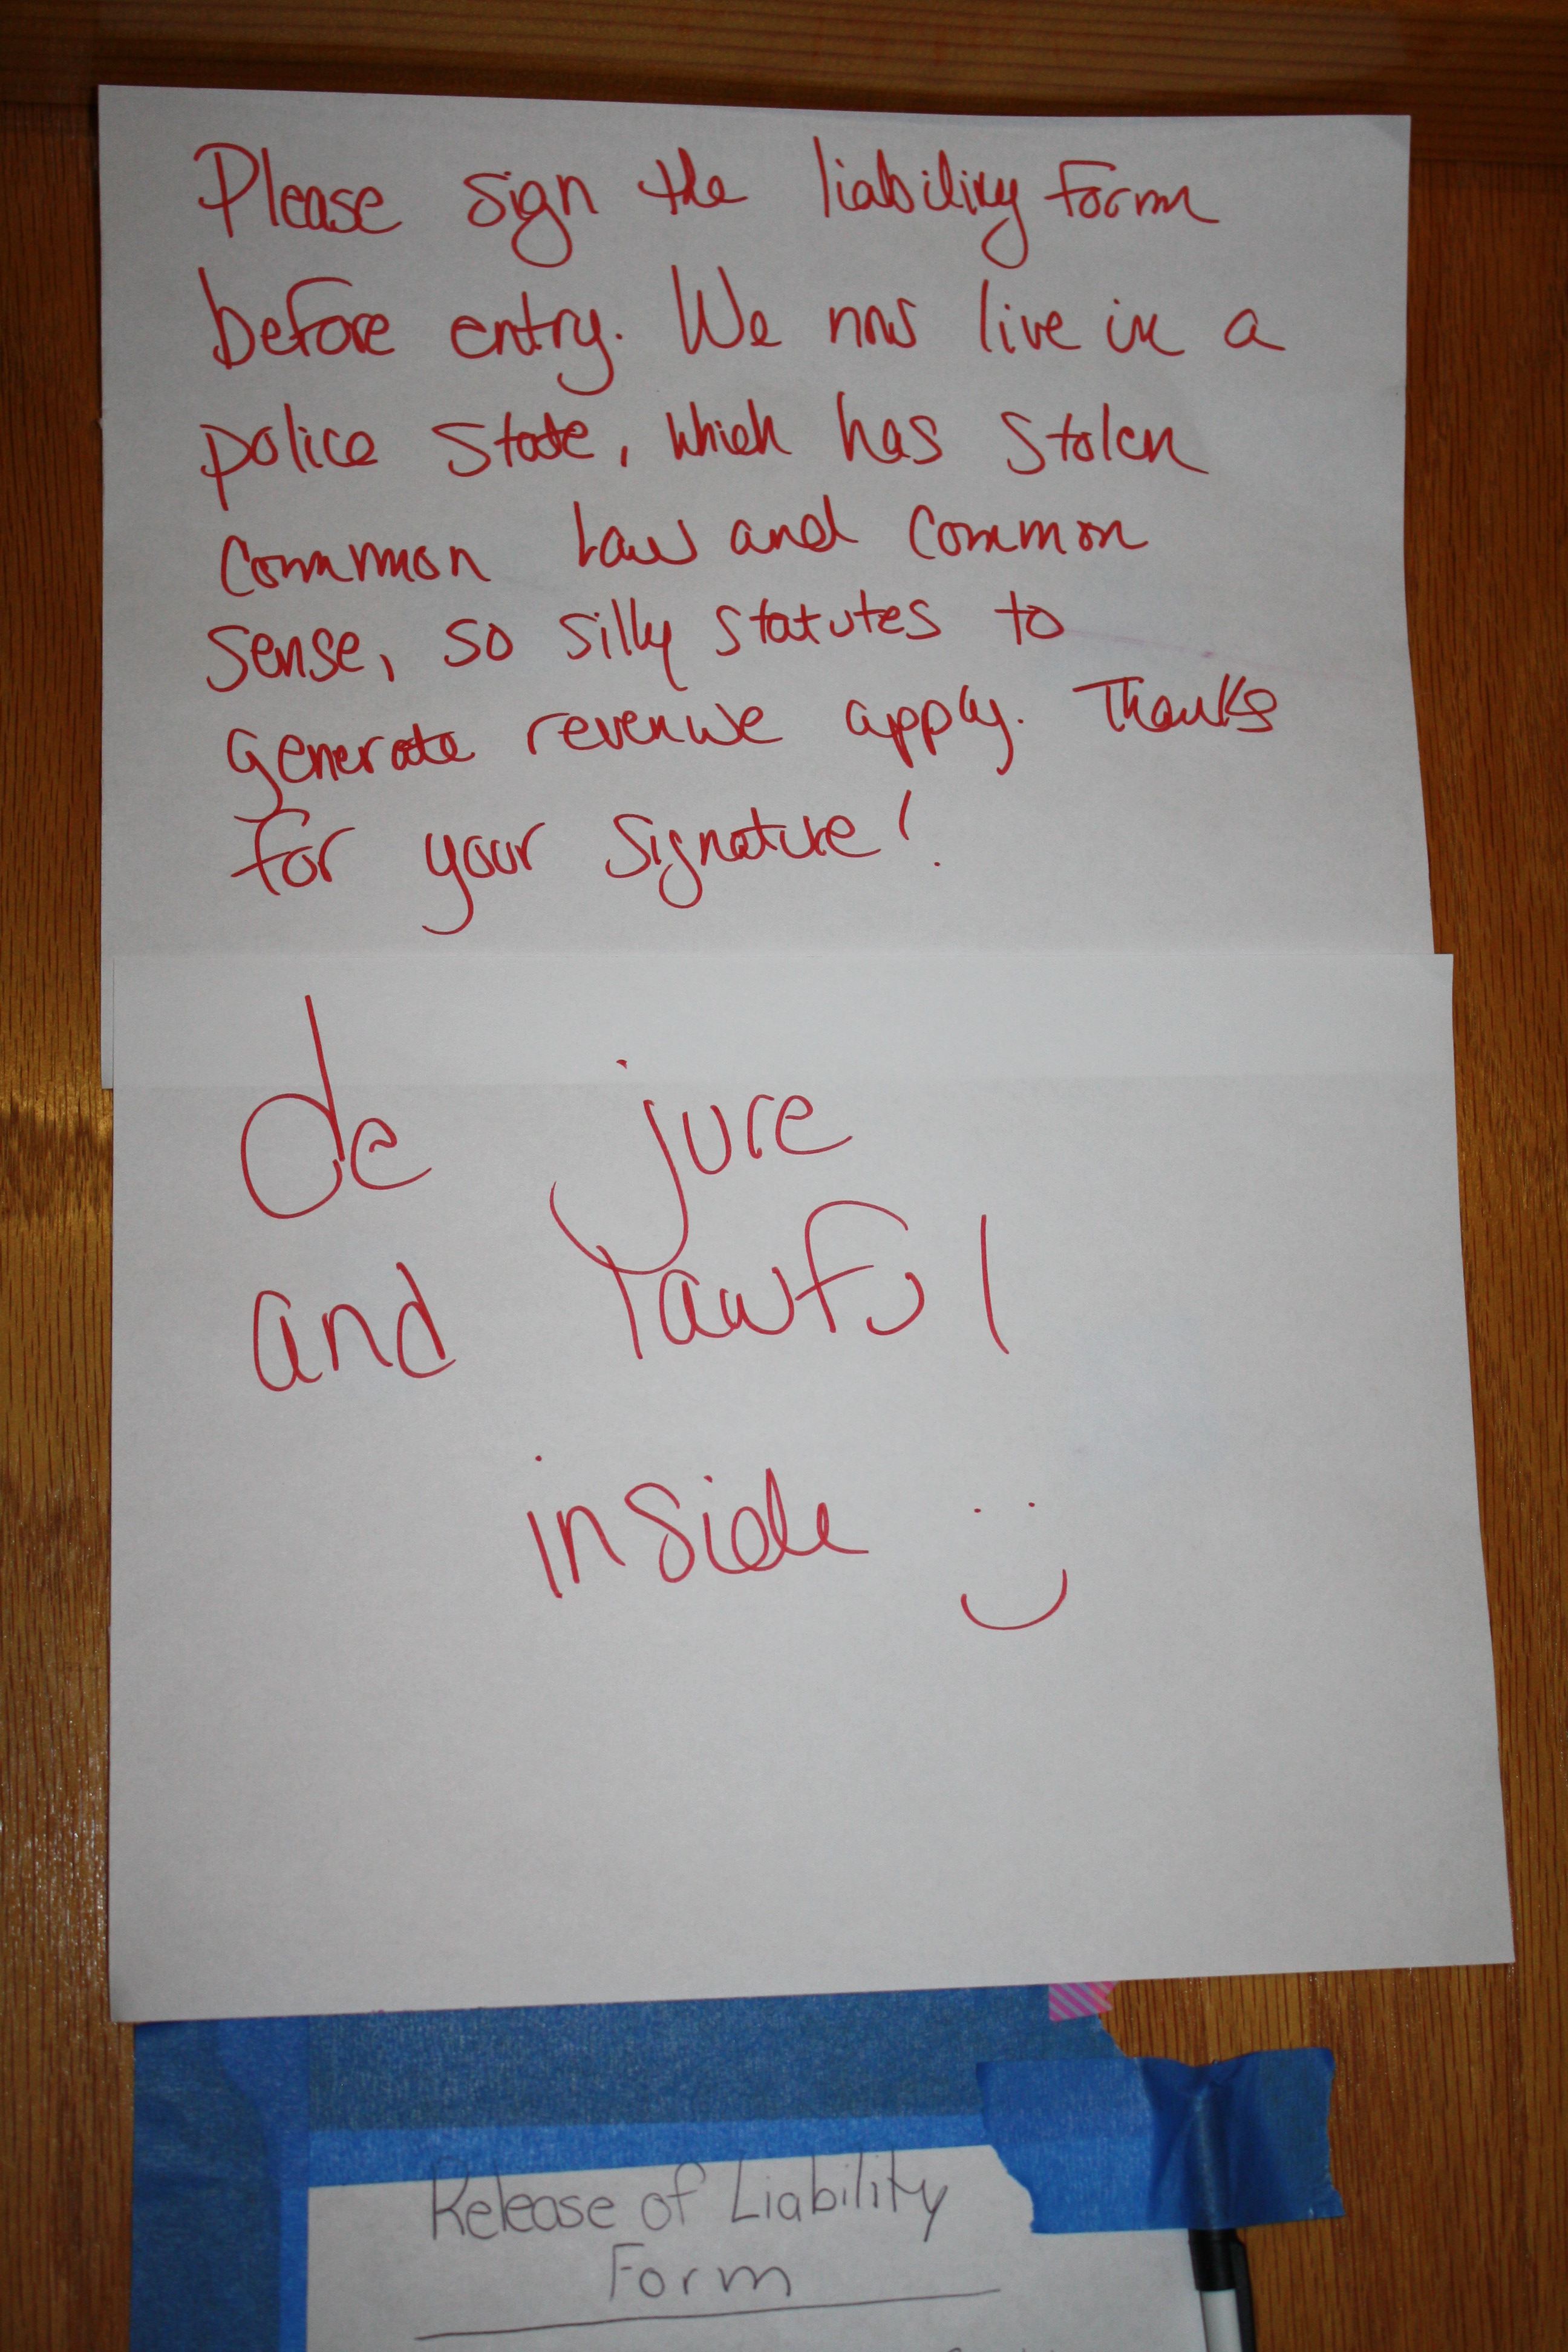 Please sign the liability form
before entry. We now live in a
police state, which has stolen
common law and common
sense, so silly statutes to
generate revenue apply. Thanks
for your signature!
de jure
and lawful
inside :)
Release of Liability
Form